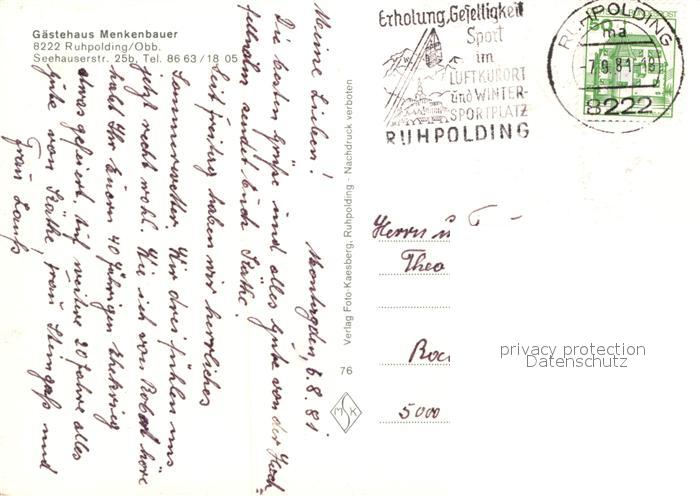 Gästehaus Menkenbauer
8222 Ruhpolding/Obb.
Seehauserstr. 25b, Tel. 86 63/18 05
Meine Lieben! Montagden, 7.8.81.
Die besten Grüße und alles Gute von der Hoch=
fellnalm sendet Euch Käthe.
Seit Freitag haben wir herrliches
Sommerwetter. Wir drei fühlen uns
jetzt recht wohl. Wie ich von Robert höre
habt Ihr Euern 40 jährigen
etwas gefeiert. Auf weitere 20 Jahre alles
Gute von Käthe, Frau Steingaß und
Frau Lauß
Verlag Foto-Kaesberg, Ruhpolding - Nachdruck verboten
76
M S K
Erholung, Geselligkeit
Sport
im
LUFTKURORT
und WINTER-
SPORTPLATZ
RUHPOLDING
RUHPOLDING
ma
-7.9.81-18
8222
50
Herrn u
Theo
5000
privacy protection
Datenschutz